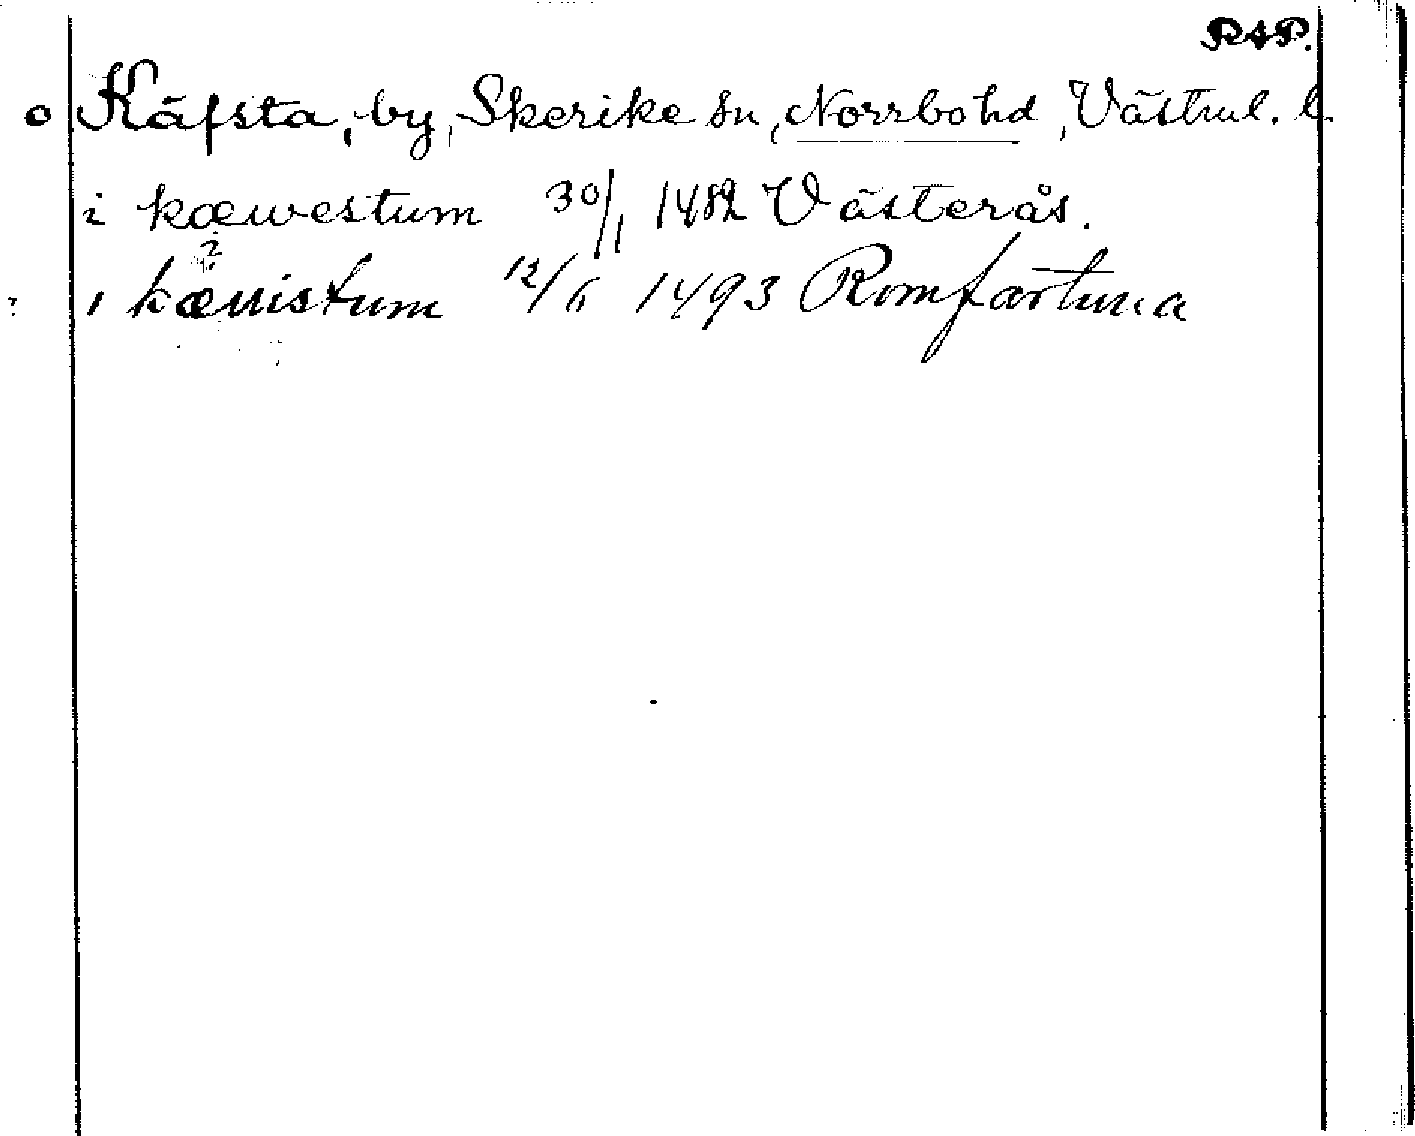 RAP.
o Käfsta, by, Skerike sn, Norrbo hd, Västml. l.
i kæwestum 30/1 1482 Västerås.
?
? i kænistum 12/6 1493 Romfartuna